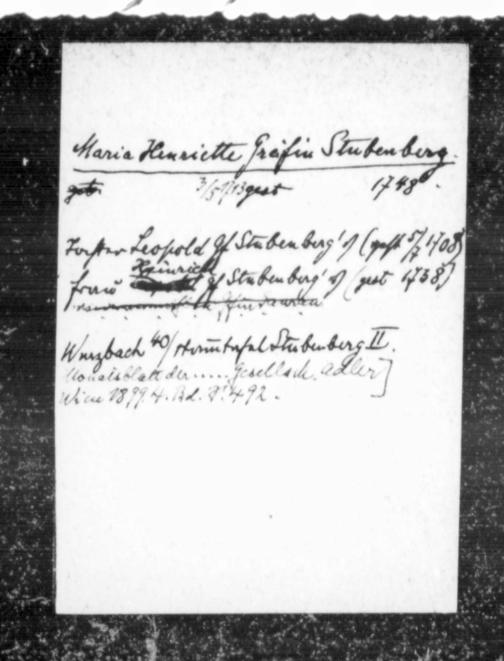 Maria Henriette Gräfin Stubenberg.
geb. 3/5 1713 gest 1748.
Tochter Leopold Gf Stubenberg's (gest 5/7 1708)
Heinrich
frau Gf Stubenberg's (gest 1738)
Wurzbach 40/ Stammtafel Stubenberg II.
Monatsblatt der ..... Gesellsch. Adler]
Wien 1899. 4. Bd. S. 492.